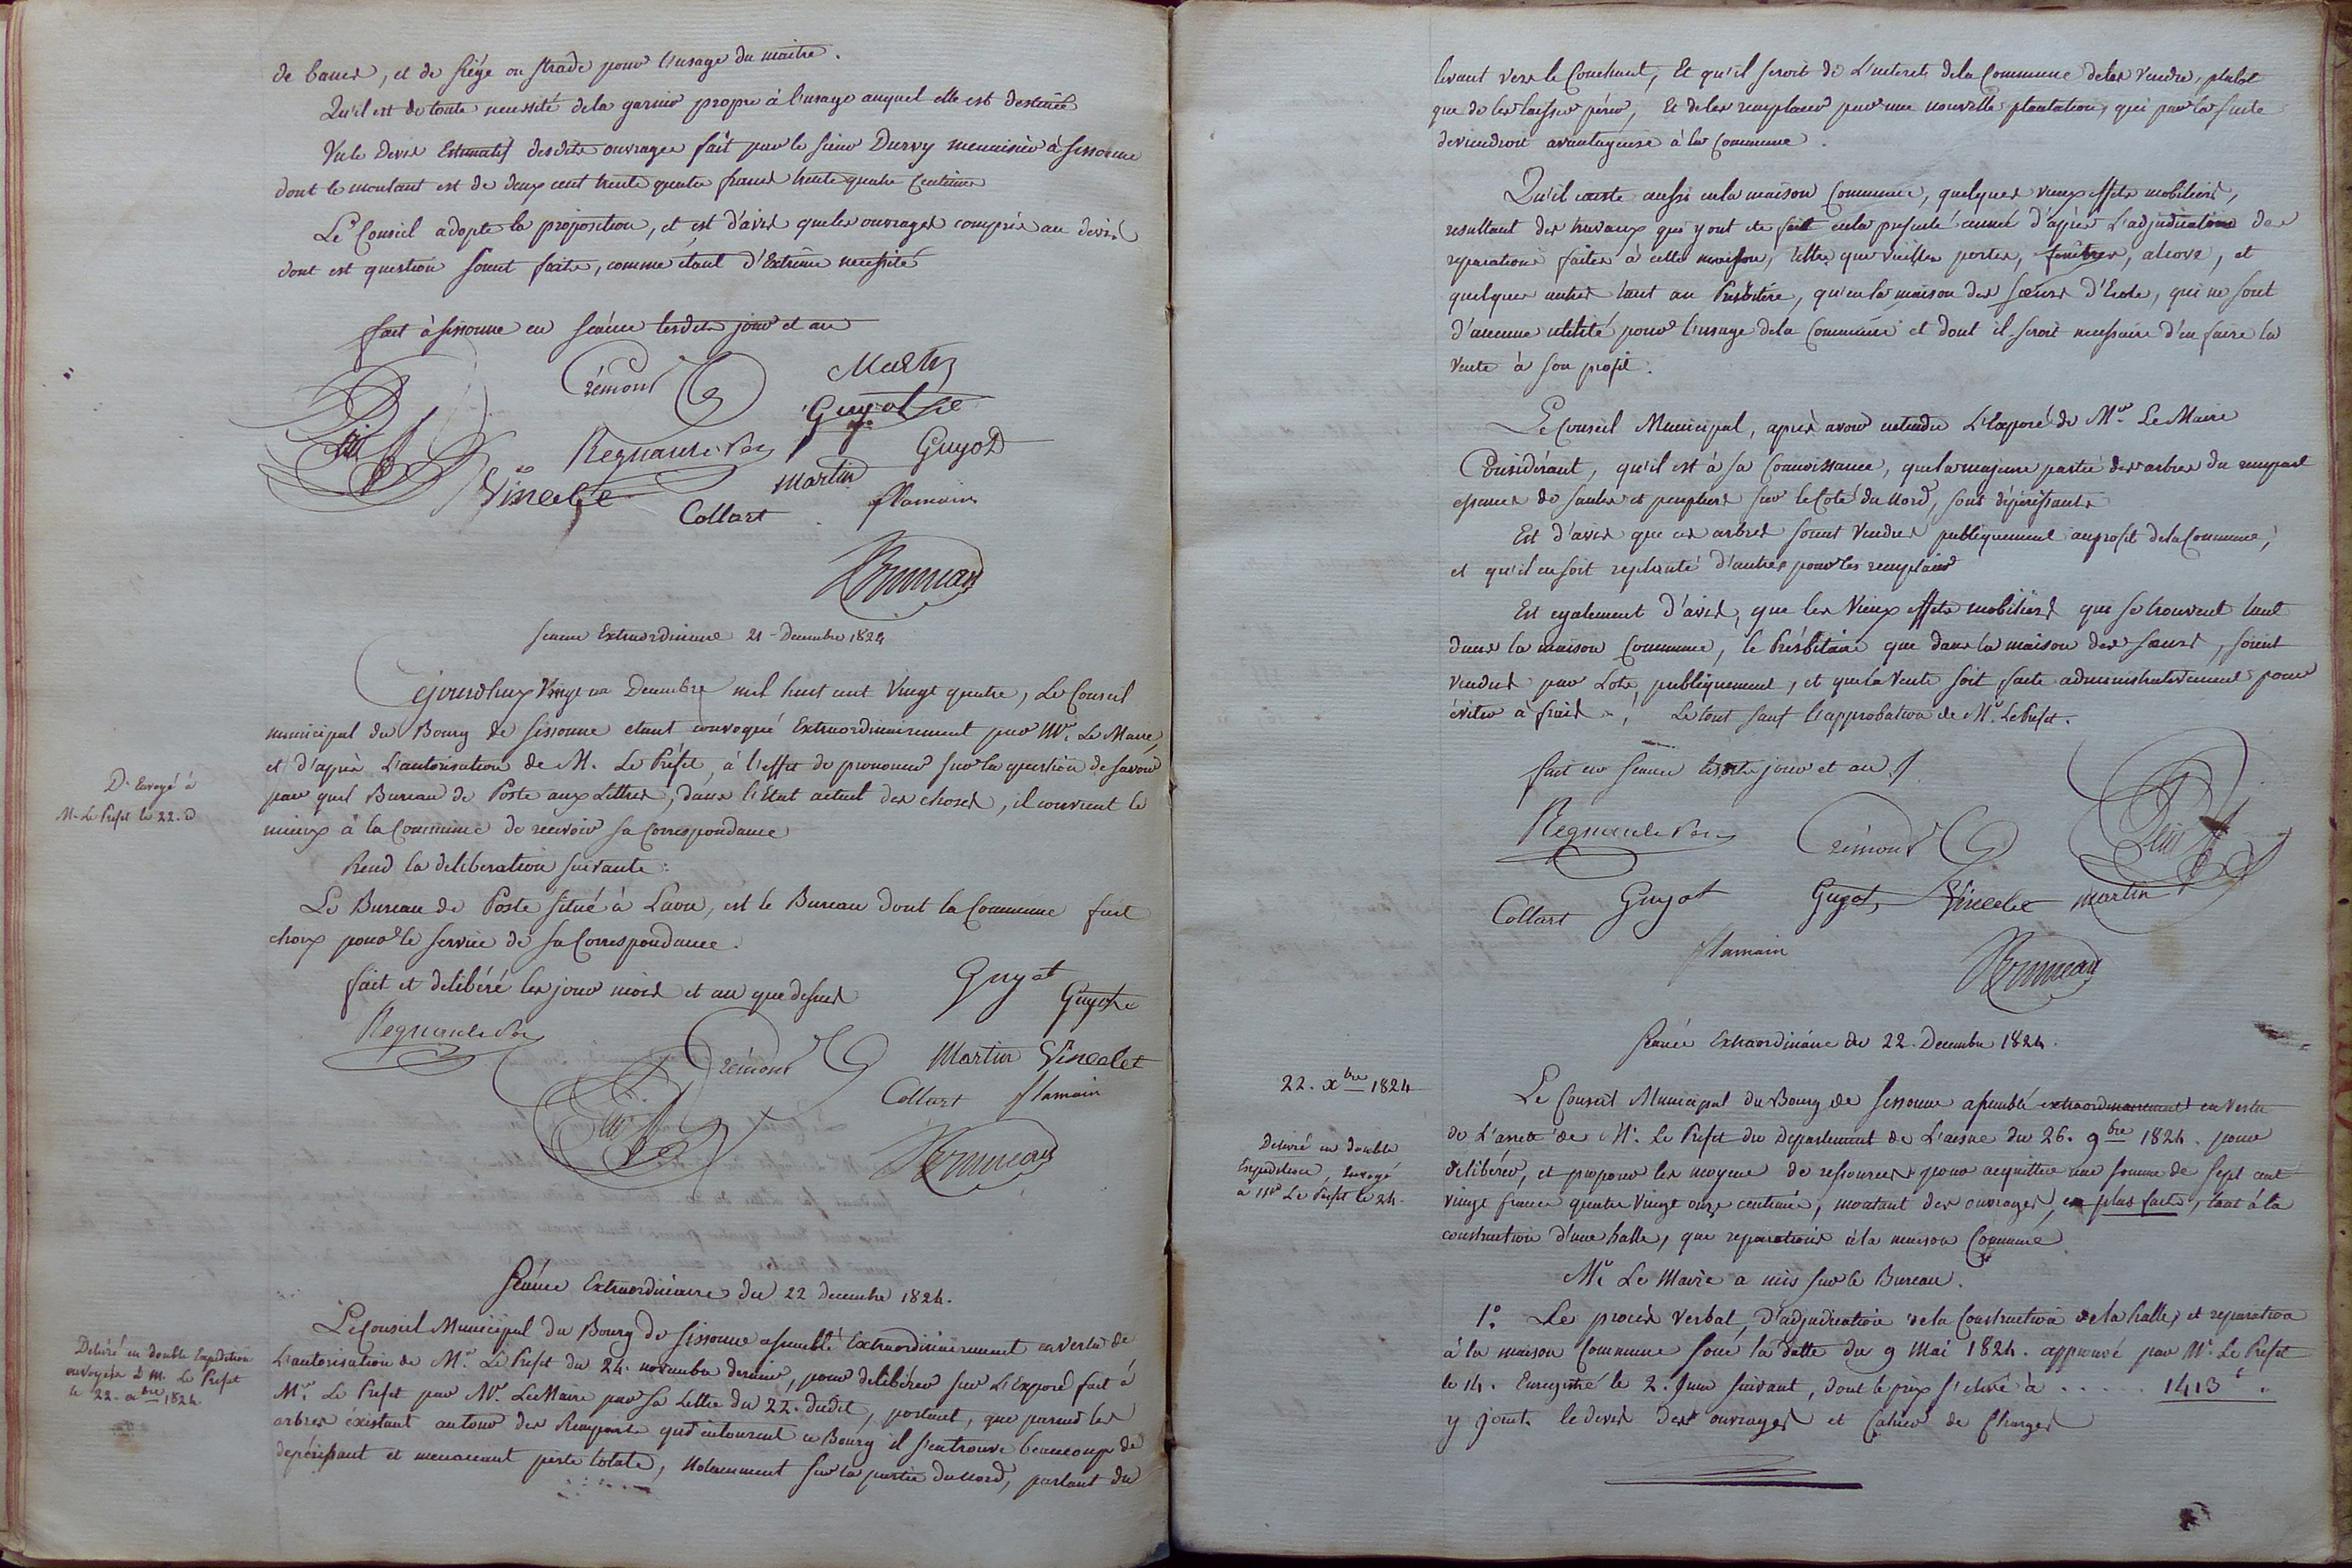 de bancs, et de siége ou strade pour l'usage du maitre.
Qu'il est de toute necessité de la garnir propre à l'usage auquel elle est destinée
Vu le Devis Estimatif desdits ouvrages fait par le sieur Durvy menuisier à Sissonne
dont le montant est de deux cent trente quatre francs trente quatre Centimes
Le Conseil adopte la proposition, et est d'avis que les ouvrages compris au devis
dont est question soient faits, comme étant d'Extrême necessité
fait à Sissonne en séance lesdits jour et an
Crémont
Martin
Guyot
Regnault
Guyot
Vincelet
Martin
Collart
flamain
Bruneau
Seance Extraordinaire 21 - Decembre 1824
Cejourd'huy Vingt un Decembre mil huit cent Vingt quatre, Le Conseil
municipal du Bourg de Sissonne etant convoqué Extraordinairement par Mr. Le Maire,
et d'après L'autorisation de M. Le Préfet, à l'effet de prononcer sur la question de savoir
par quel Bureau de Poste aux Lettres, dans l'Etat actuel des choses, il convient le
mieux à la Commune de recevoir sa Correspondance
D. Envoyé à
M. Le Prefet le 22. d
Rend la deliberation suivante:
Le Bureau de Poste situé à Laon, est le Bureau dont la Commune fait
choix pour le service de sa Correspondance.
fait et delibéré les jour mois et an que dessus
Guyot
Guyot
Regnault
Crémont
Martin Vincelet
Collart flamain
Bruneau
Séance Extraordinaire du 22 decembre 1824.
Le Conseil Municipal du Bourg de Sissonne assemblé Extraordinairement en vertu de
L'autorisation de Mr. Le Prefet du 24. novembre dernier, pour delibérer sur L'Exposé fait à
Mr. Le Prefet par Mr. Le Maire par sa Lettre du 22. dudit, portant, que parmi les
arbres éxistant autour des Remparts qui entourent ce Bourg il s'en trouve beaucoup de
depérissant et menacant perte totale, Notamment sur la partie du nord, partant du
Delivré en double Expedition
envoyée à M. Le Prefet
le 22. xbre 1824.
levant vers le Couchant, Et qu'il seroit de L'interet de la Commune de les vendre, plutot
que de les laisser périr, Et de les remplacer par une nouvelle plantation, qui par la suite
deviendroit avantageuse à la Commune.
Qu'il éxiste aussi en la maison Commune, quelques vieux effets mobiliers,
resultant des travaux qui y ont ete fait en la presente année d'après L'adjudication des
reparations faites à cette maison, telles que vieilles portes, fenêtres, alcove, et
quelques autres tant au Presbitère, qu'en la maison des Sœurs d'Ecole, qui ne sont
d'aucune utilité pour l'usage de la Commune et dont il seroit necessaire d'en faire la
vente à son profit.
Le Conseil Municipal, après avoir entendu L'Exposé de Mr. Le Maire
Considérant, qu'il est à sa Connoissance, que la majeure partie des arbres du rempart
essences de saules et peupliers sur le Coté du Nord, sont dépérissants
Est d'avis que ces arbres soient Vendus publiquement au profit de la Commune,
et qu'il en soit replanté d'autres pour les remplacer
Est egalement d'avis, que les Vieux effets mobiliers qui se trouvent tant
dans la maison Commune, le Présbitaire que dans la maison des Sœurs, soient
vendus par Lots, publiquement, et que la Vente soit faite administrativement pour
éviter à frais, Le tout sauf l'approbation de Mr. Le Prefet.
fait en seance lesdits jour et an
Regnault
Crémont
Collart
Guyot
Guyot
Vincelet
Martin
flamain
Bruneau
Séance Extraordinaire du 22. Decembre 1824.
22. xbre 1824
Le Conseil Municipal du Bourg de Sissonne assemblé extraordinairement en vertu
de L'arreté de Mr. Le Prefet du Departement de L'aisne du 26. 9bre 1824. pour
delibérer, et proposer les moyens de ressources pour acquitter une somme de sept cent
vingt francs quatre vingt onze centimes, montant des ouvrages, en plus faits, tant à la
construction d'une halle, que reparations à la maison Commune
Delivré en double
Expédition, Envoyé
à Mr Le Prefet le 24.
Mr. Le Maire a mis sur le Bureau.
1.o Le procès Verbal, d'adjudication de la Construction de la halle, et reparation
à la maison Commune sous la datte du 9 Mai 1824. approuvé par Mr. Le Prefet
le 14. Enregistré le 2. Juin suivant, dont le prix s'eleve à ..... 1413 f "
y joint le devis des ouvrages et Cahier de Charges